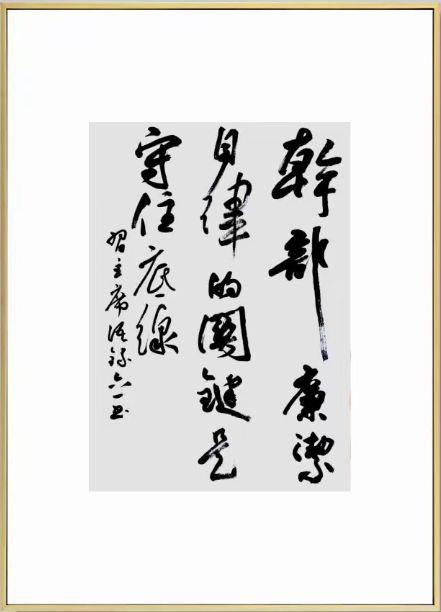 幹部廉潔
自律的關鍵是
守住底線
習主席语錄六一书